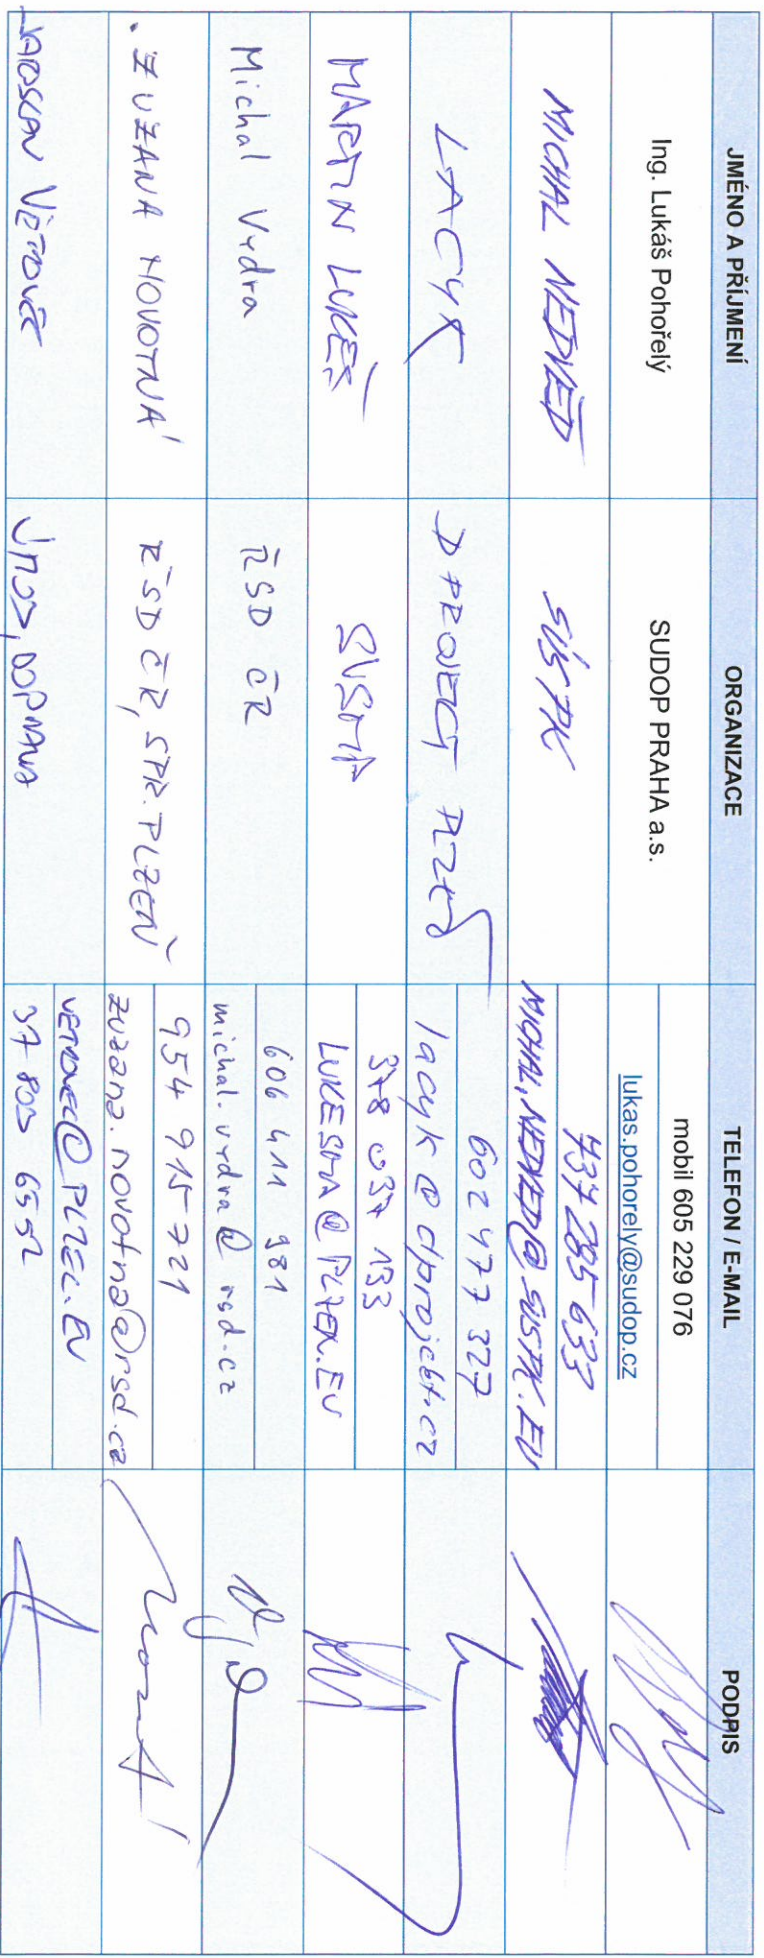 JMÉNO A PŘÍJMENÍ ORGANIZACE TELEFON / E-MAIL PODPIS
Ing. Lukáš Pohořelý SUDOP PRAHA a.s. mobil 605 229 076
lukas.pohorely@sudop.cz
MICHAL NEDVĚD SÚSPK 737 285 633
MICHAL.NEDVED@SUSPK.EU
LACYK D PROJECT PLZEŇ 602 477 327
lacyk@dprojekt.cz
MARTIN LUKEŠ SVSMP 378 037 133
LUKESMA@PLZEN.EU
Michal Vydra ŘSD ČR 606 411 981
michal.vydra@rsd.cz
ZUZANA NOVOTNÁ ŘSD ČR, SPR. PLZEŇ 954 915 721
zuzana.novotna@rsd.cz
JAROSLAV VĚTROVEC DOPRAVA
37 803 6552